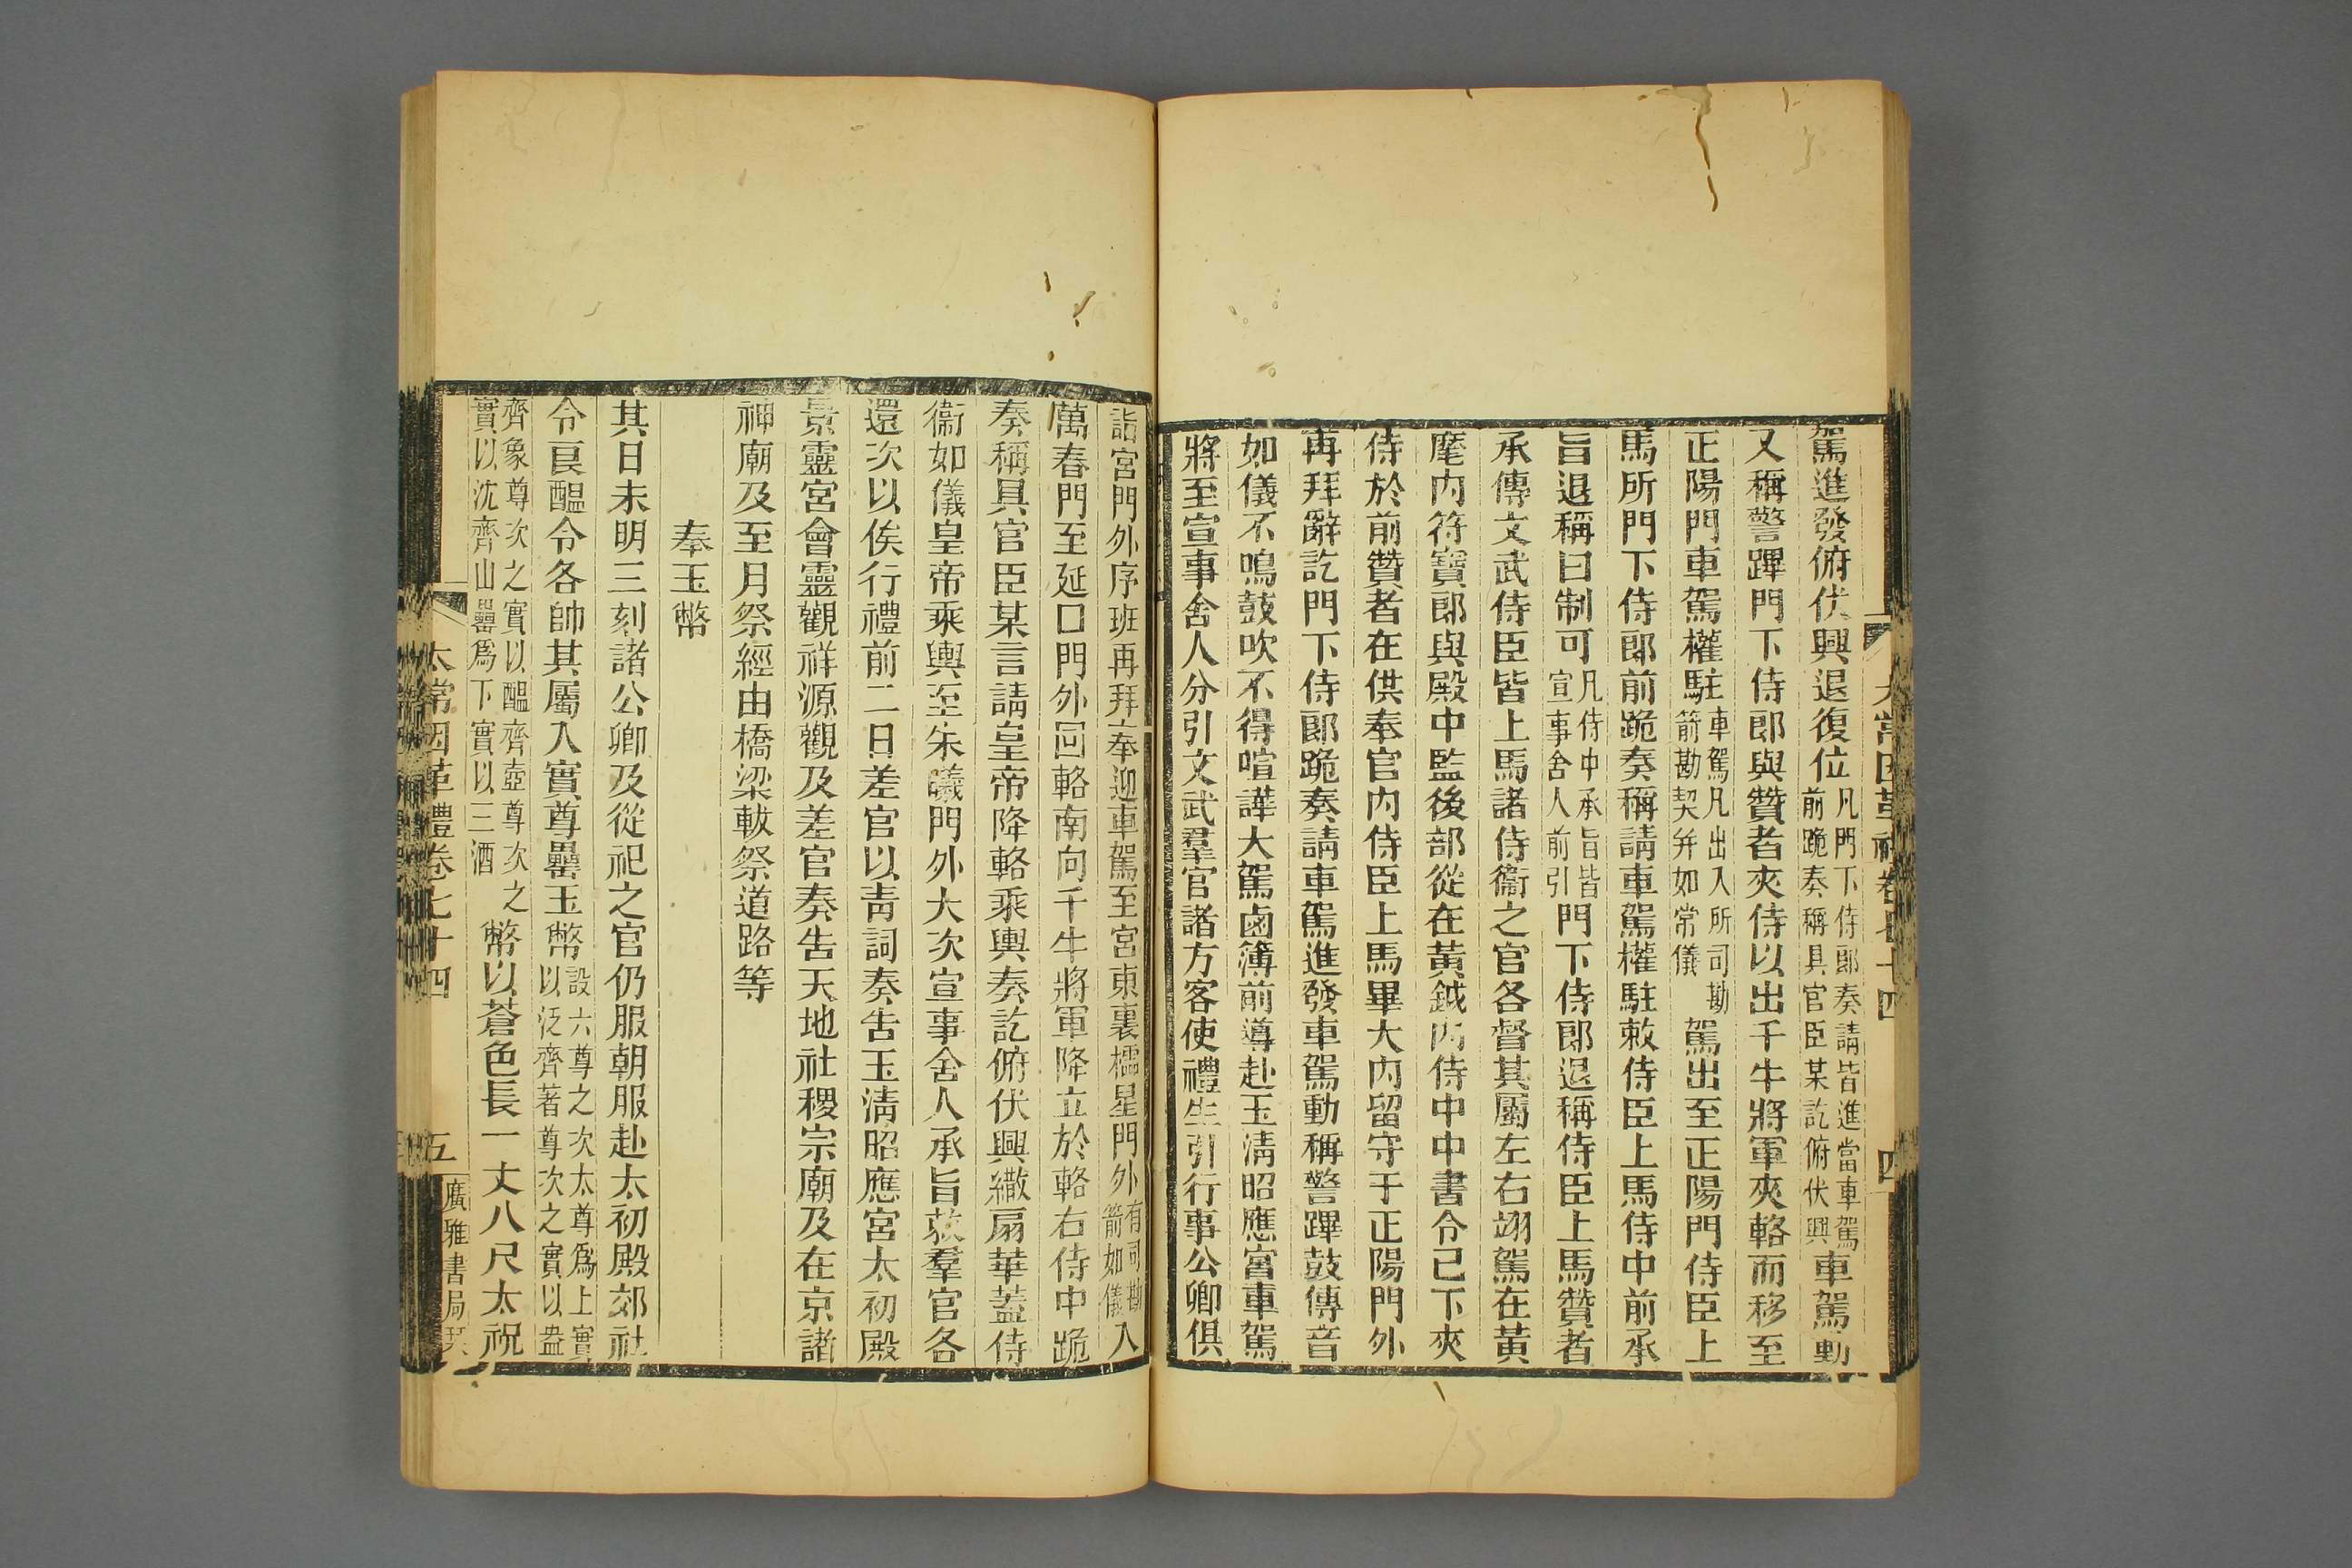 太常因革禮卷七十四
四
駕進發俯伏興退復位凡門下侍郎奏請皆進當車駕前跪奏稱具官臣某訖俯伏興車駕動
又稱警蹕門下侍郎與贊者夾侍以出千牛將軍夾輅而移至
正陽門車駕權駐車駕凡出入所司勘箭勘契幷如常儀駕出至正陽門侍臣上
馬所門下侍郎前跪奏稱請車駕權駐敕侍臣上馬侍中前承
旨退稱曰制可凡侍中承旨皆宣事舍人前引門下侍郎退稱侍臣上馬贊者
承傳文武侍臣皆上馬諸侍衞之官各督其屬左右翊駕在黃
麾內符寶郎與殿中監後部從在黃鉞內侍中中書令已下夾
侍於前贊者在供奉官內侍臣上馬畢大內留守于正陽門外
再拜辭訖門下侍郎跪奏請車駕進發車駕動稱警蹕鼓傳音
如儀不鳴鼓吹不得喧譁大駕鹵簿前導赴玉淸昭應宮車駕
將至宣事舍人分引文武羣官諸方客使禮生引行事公卿俱
詣宮門外序班再拜奉迎車駕至宮東裏櫺星門外有司勘箭如儀入
萬春門至延口門外回輅南向千牛將軍降立於輅右侍中跪
奏稱具官臣某言請皇帝降輅乘輿奏訖俯伏興繖扇華蓋侍
衞如儀皇帝乘輿至朱曦門外大次宣事舍人承旨敕羣官各
還次以俟行禮前二日差官以靑詞奏告玉淸昭應宮太初殿
景靈宮會靈觀祥源觀及差官奏告天地社稷宗廟及在京諸
神廟及至月祭經由橋梁軷祭道路等
奉玉幣
其日未明三刻諸公卿及從祀之官仍服朝服赴太初殿郊社
令良醞令各帥其屬入實尊罍玉幣設六尊之次太尊爲上實以泛齊著尊次之實以盎
齊象尊次之實以醞齊壺尊次之實以沈齊山罍爲下實以三酒幣以蒼色長一丈八尺太祝
太常因革禮卷七十四
五
廣雅書局栞